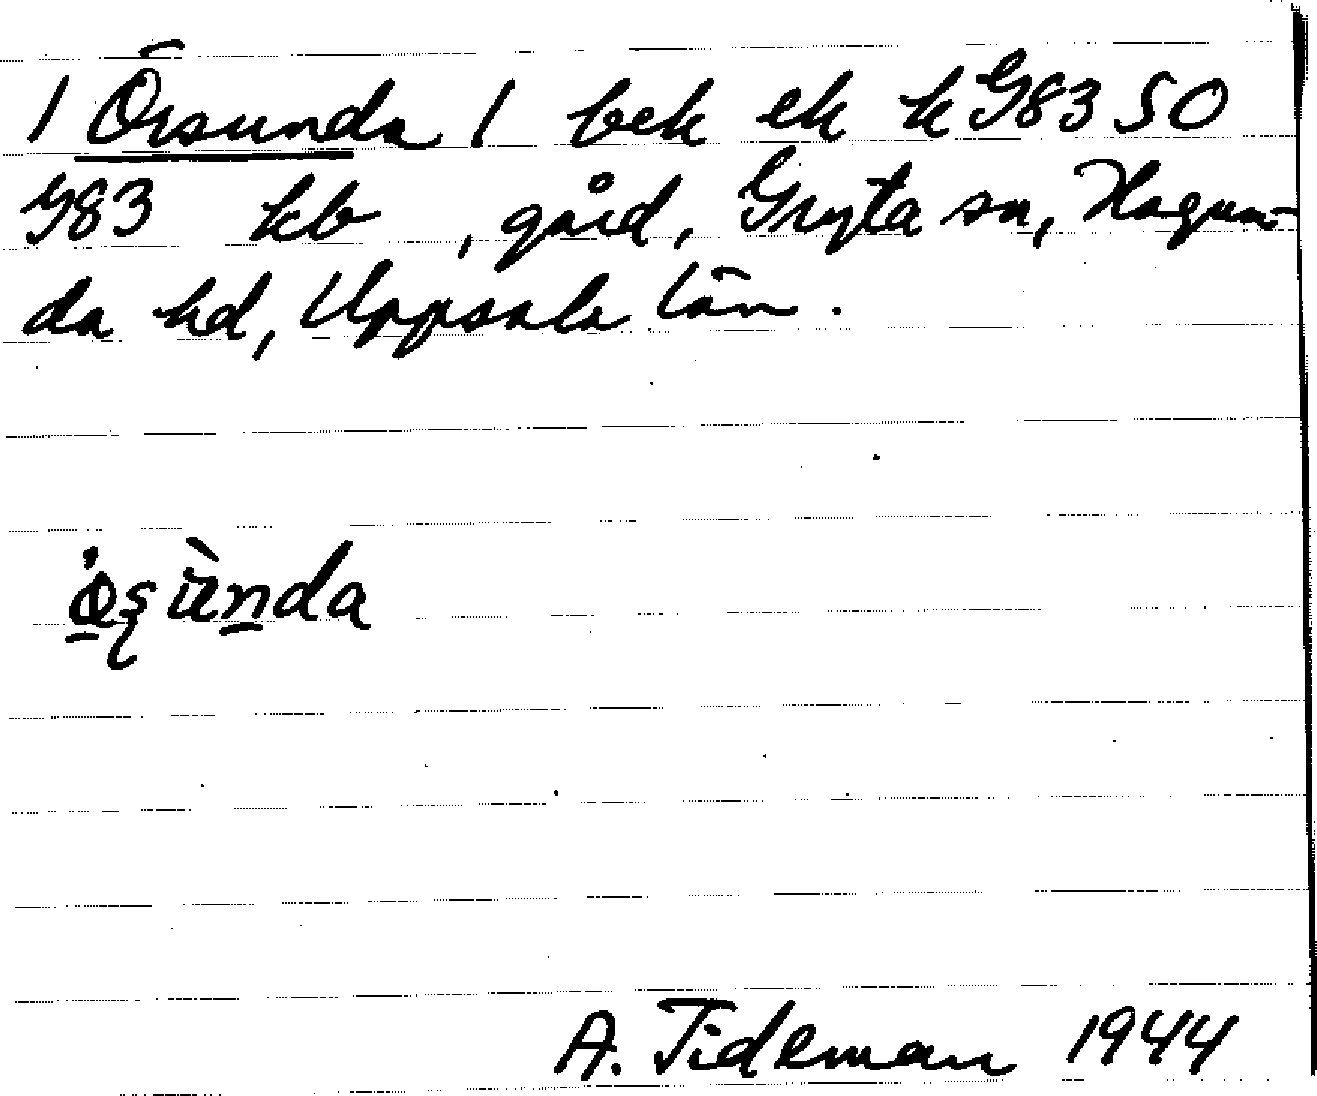 / Örsunda / bek ek k G83 SO
G83 kb , gård, Gryta sn, Hagun-
da hd, Uppsala län.
ö̀ʂùnda
A. Tideman 1944